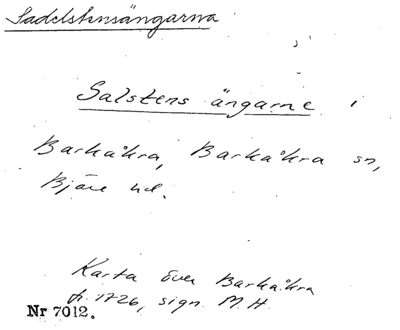 Sadelstensängarna
Salstens ängarne
Barkåkra, Barkåkra sn,
Bjäre hd.
Karta över Barkåkra
fr. 1726, sign. M.H.
Nr 7012.